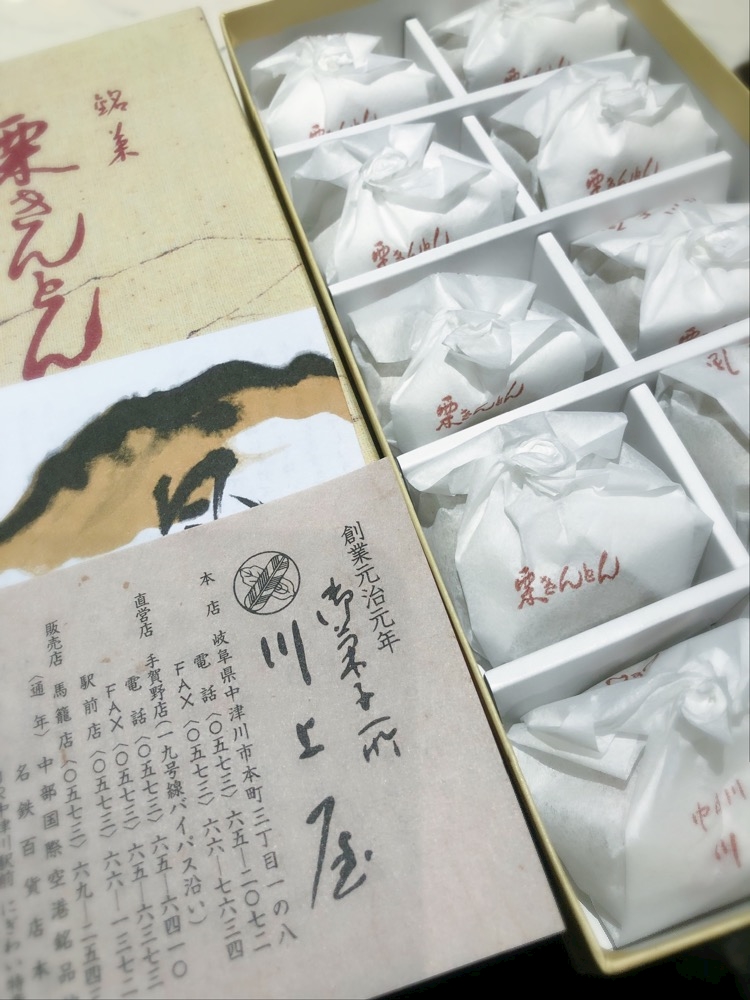 銘菓
栗きんとん
創業元治元年
御菓子所
川上屋
本店 岐阜県中津川市本町三丁目一の八
電話〈〇五七三〉六五―二〇七二
FAX〈〇五七三〉六六―七六三四
直営店 手賀野店〈一九号線バイパス沿い〉
電話〈〇五七三〉六五―六四一〇
FAX〈〇五七三〉六五―六三二七
駅前店〈〇五七三〉六六―一三七二
販売店 馬籠店〈〇五七三〉六九―二五四
〈通年〉中部国際空港銘品
名鉄百貨店本
栗きんとん
栗きんとん
栗きんとん
栗きんとん
栗きんとん